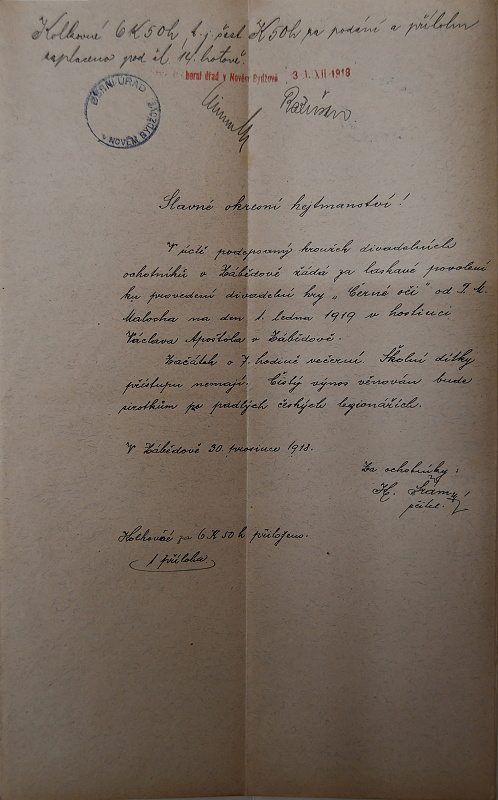 Kolkovné 6 K 50 h t. j. šest K 50 h za podání a přílohu
zaplaceno pod čl. 14. hotově.
berní úřad v Novém Bydžově 3 1. XII 1918
BERNÍ ÚŘAD
NOVÉM BYDŽOVĚ
Slavné okresní hejtmanství!
V úctě podepsaný kroužek divadelních
ochotníků v Zábědově žádá za laskavé povolení
ku provedení divadelní hry „Černé oči" od J. A.
Malocha na den 1. ledna 1919 v hostinci
Václava Apoštola v Zábědově.
Začátek o 7. hodině večerní. Školní dítky
přístupu nemají. Čistý výnos věnován bude
sirotkům po padlých českých legionářích.
V Zábědově 30. prosince 1918.
Za ochotníky:
K.
Kolkové za 6 K 50 h přiloženo.
1 příloha.